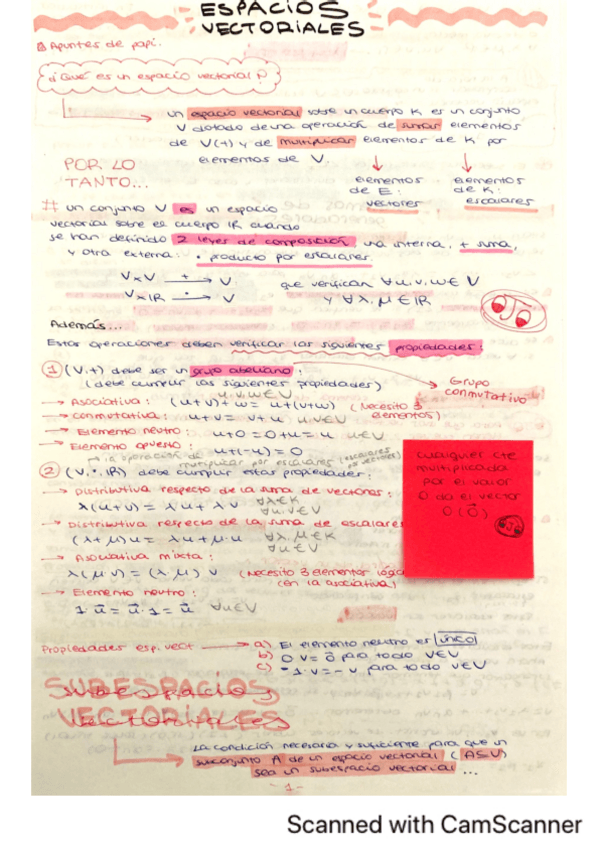 ESPACIOS
VECTORIALES
Apuntes de papi.
¿Qué es un espacio vectorial?
un espacio vectorial sobre un cuerpo K es un conjunto
V dotado de una operación de sumar elementos
de V(+) y de multiplicar elementos de K por
elementos de V.
POR LO
TANTO...
elementos
de E:
vectores
elementos
de K:
escalares
# un conjunto V es un espacio
vectorial sobre el cuerpo IR cuando
se han definido 2 leyes de composición una interna, + suma,
y otra externa: • producto por escalares.
V x V + → V
que verifican ∀u,v,w ∈ V
V x IR • → V
y ∀λ,μ ∈ IR
Además...
Estas operaciones deben verificar las siguientes propiedades:
1 (V,+) debe ser un grupo abeliano:
(debe cumplir las siguientes propiedades)
Grupo
conmutativo
u,v,w ∈ V
→ Asociativa: (u+v)+w = u+(v+w) (Necesito 3
elementos)
→ conmutativa: u+v = v+u u,v ∈ V
→ Elemento neutro: u+0 = 0+u = u u ∈ V
→ Elemento opuesto: u+(-u) = 0
→ la operación de
multiplicar por escalares (escalares
2 (V, •, IR) debe cumplir estas propiedades:
→ Distributiva respecto de la suma de vectores:
λ(u+v) = λu + λv ∀λ∈K
∀u,v∈V
→ Distributiva respecto de la suma de escalares
(λ+μ)u = λu + μ·u ∀λ,μ∈K
∀u∈V
→ Asociativa mixta:
λ(μ·v) = (λ·μ) v (Necesito 3 elementos lógica
(en la asociativa)
→ Elemento neutro:
1·u⃗ = u⃗·1 = u⃗ ∀u∈V
cualquier cte
multiplicada
por el valor
0 da el vector
0 (0⃗)
Propiedades esp. vect → a) El elemento neutro es único
b) 0 v = 0⃗ para todo v∈V
c) -1·v = -v para todo v∈V
SUBESPACIOS
VECTORIALES
La condición necesaria y suficiente para que un
subconjunto A de un espacio vectorial (A⊆V)
sea un subespacio vectorial ...
- 1 -
Scanned with CamScanner